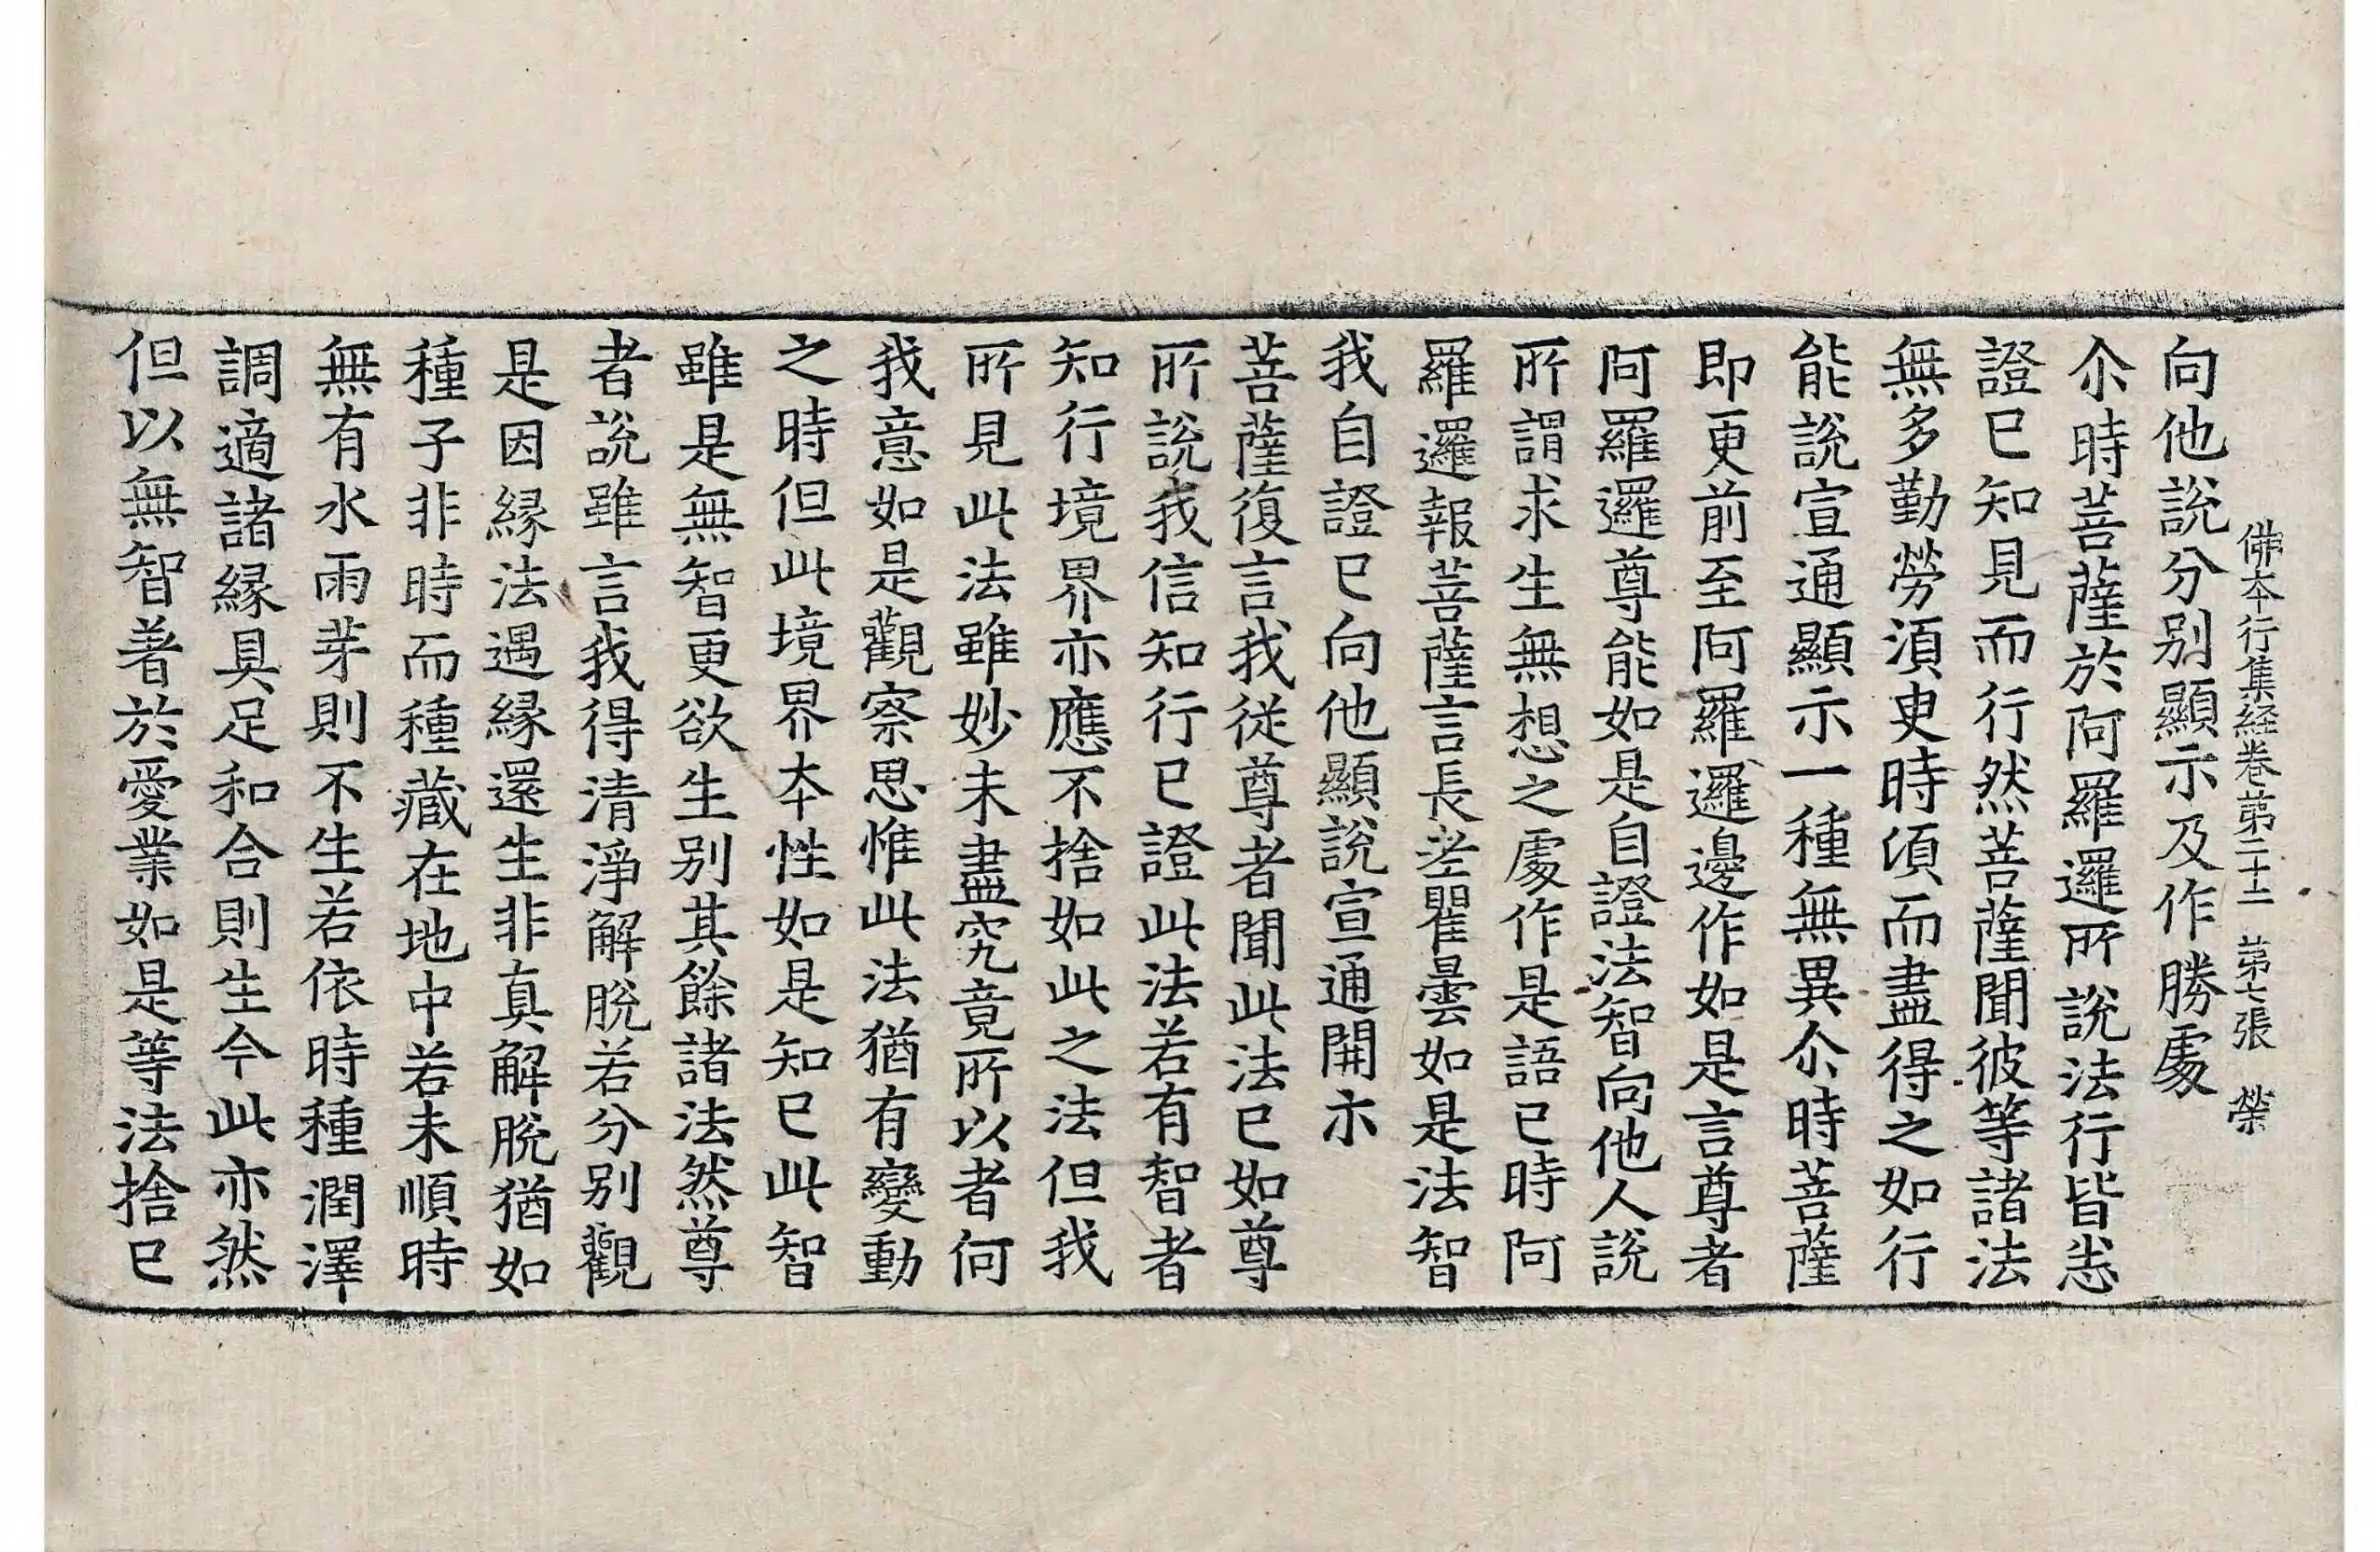 佛本行集経卷苐二十二 苐七張 榮
向他說分别顯示及作勝處
尒時菩薩於阿羅邏所說法行皆悉
證巳知見而行然菩薩聞彼等諸法
無多勤勞湏㬰時頃而盡得之如行
能說宣通顯示一種無異尒時菩薩
即更前至阿羅邏邊作如是言尊者
阿羅邏尊能如是自證法智向他人說
所謂求生無想之處作是語巳時阿
羅邏報菩薩言長老瞿曇如是法智
我自證巳向他顯說宣通開示
菩薩復言我從尊者聞此法巳如尊
所說我信知行巳證此法若有智者
知行境界亦應不捨如此之法但我
所見此法雖妙未盡究竟所以者何
我意如是觀察思惟此法猶有變動
之時但此境界本性如是知巳此智
雖是無智更欲生别其餘諸法然尊
者說雖言我得清淨解脫若分别觀
是因縁法遇縁還生非真解脫猶如
種子非時而種藏在地中若未順時
無有水雨芽則不生若依時種潤澤
調適諸縁具足和合則生今此亦然
但以無智著於愛業如是等法捨巳